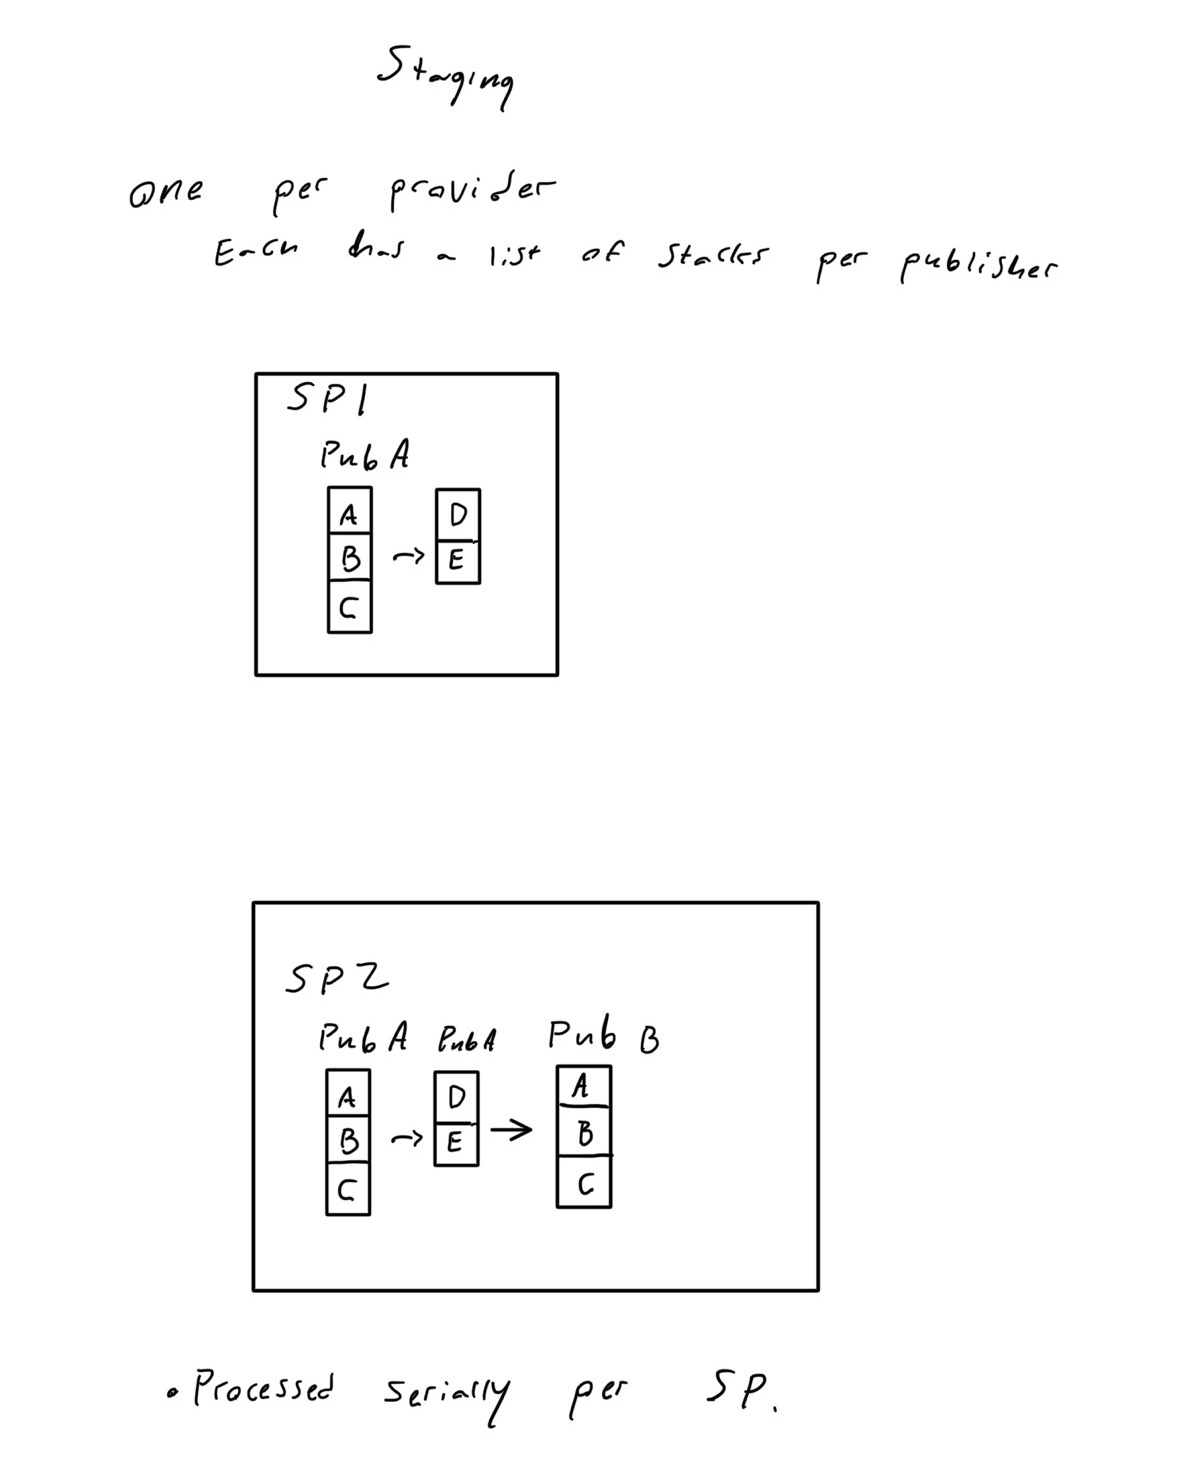 Staging
one per provider
Each has a list of stacks per publisher
SP1
Pub A
A
B
C
→
D
E
SP2
Pub A
Pub A
Pub B
A
B
C
→
D
E
→
A
B
C
• Processed serially per SP.